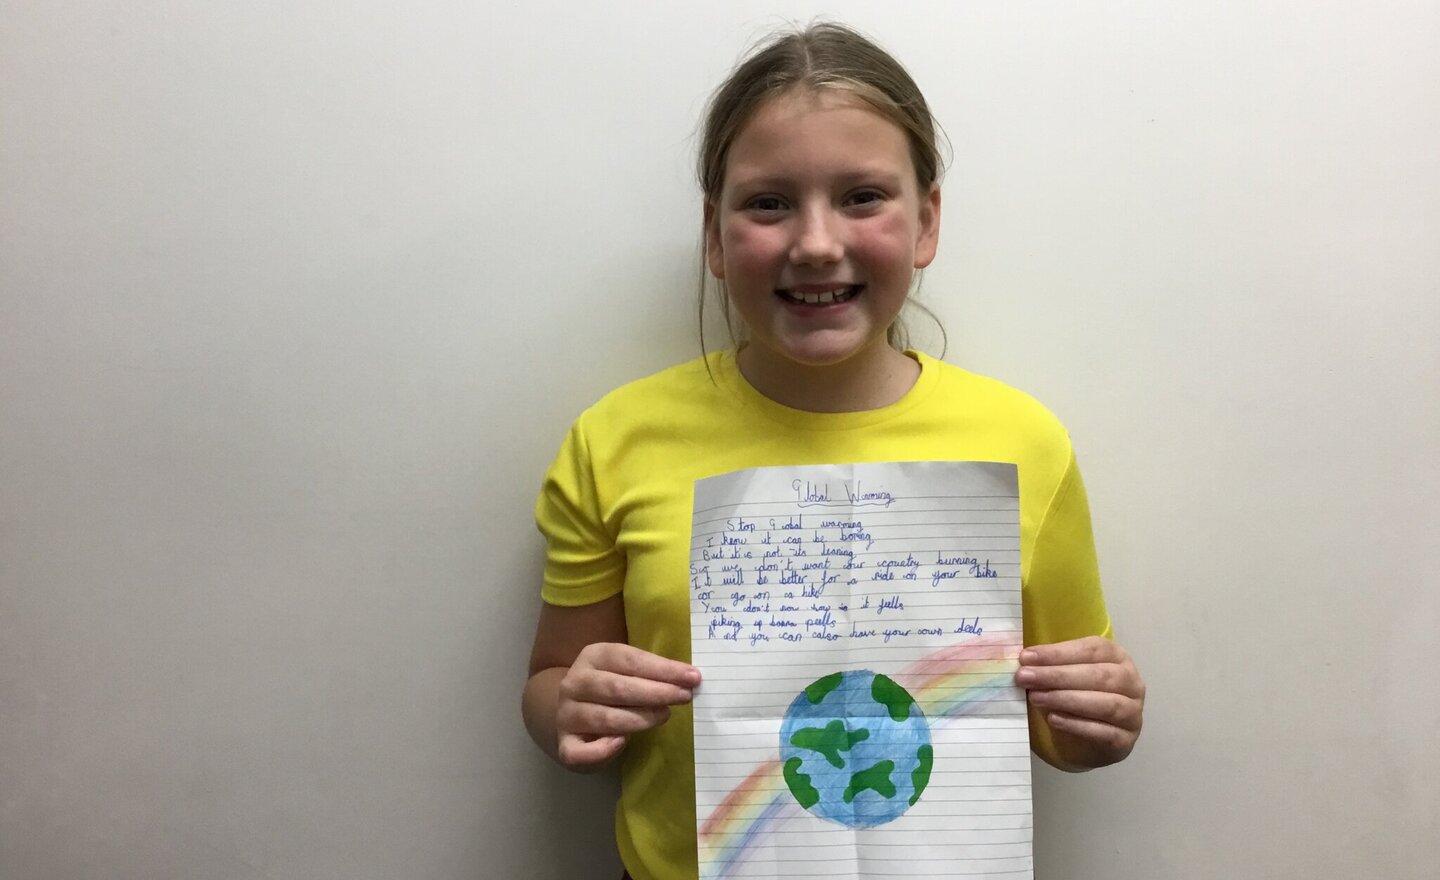 Global Warming
Stop Global warming
I know it can be boring
But it is not its leaning
So we don't want our country burning
It will be better for a ride on your bike
or go on a hike
You don't now how it fells
piking up banna peells
And you can also have your own deels